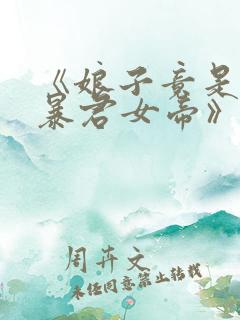 《娘子竟是
暴君女帝》
周卉文
未经同意禁止转载